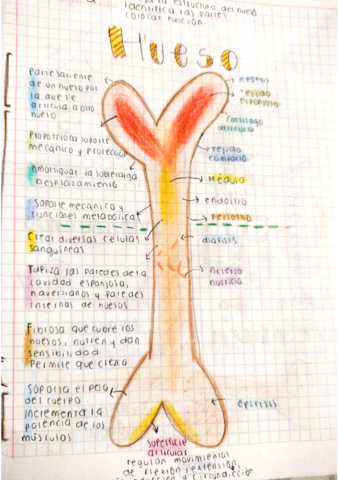 la estructura del hueso
identifica las partes
colocar función
Hueso
Parte saliente
de un hueso por
la que se
articula a otro
hueso
Proporciona soporte
mecánico y protección
Amortiguar la sobrecarga
desplazamiento
Soporte mecánico y
funciones metabólicas
Crear diversas células
sanguíneas
Tapiza las paredes de la
cavidad esponjosa,
haversianos y paredes
internas de huesos
Fibrosa que cubre los
huesos, nutren y dan
sensibilidad
Permite que crezca
Soporta el peso
del cuerpo
incrementa la
potencia de los
músculos
tejido
esponjoso
cartílago
articular
tejido
compacto
Médula
endostio
periostio
diáfisis
Arteria
nutricia
epífisis
Superficie
articular
regulan movimientos
de flexión, extensión,
circunducción